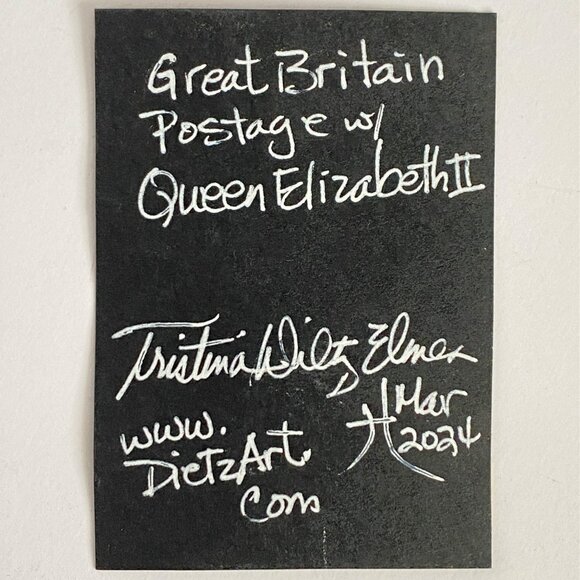 Great Britain
Postage w/
Queen Elizabeth II
Tristina Dietz Elmes
www.
DietzArt.
Com
Mar
2024